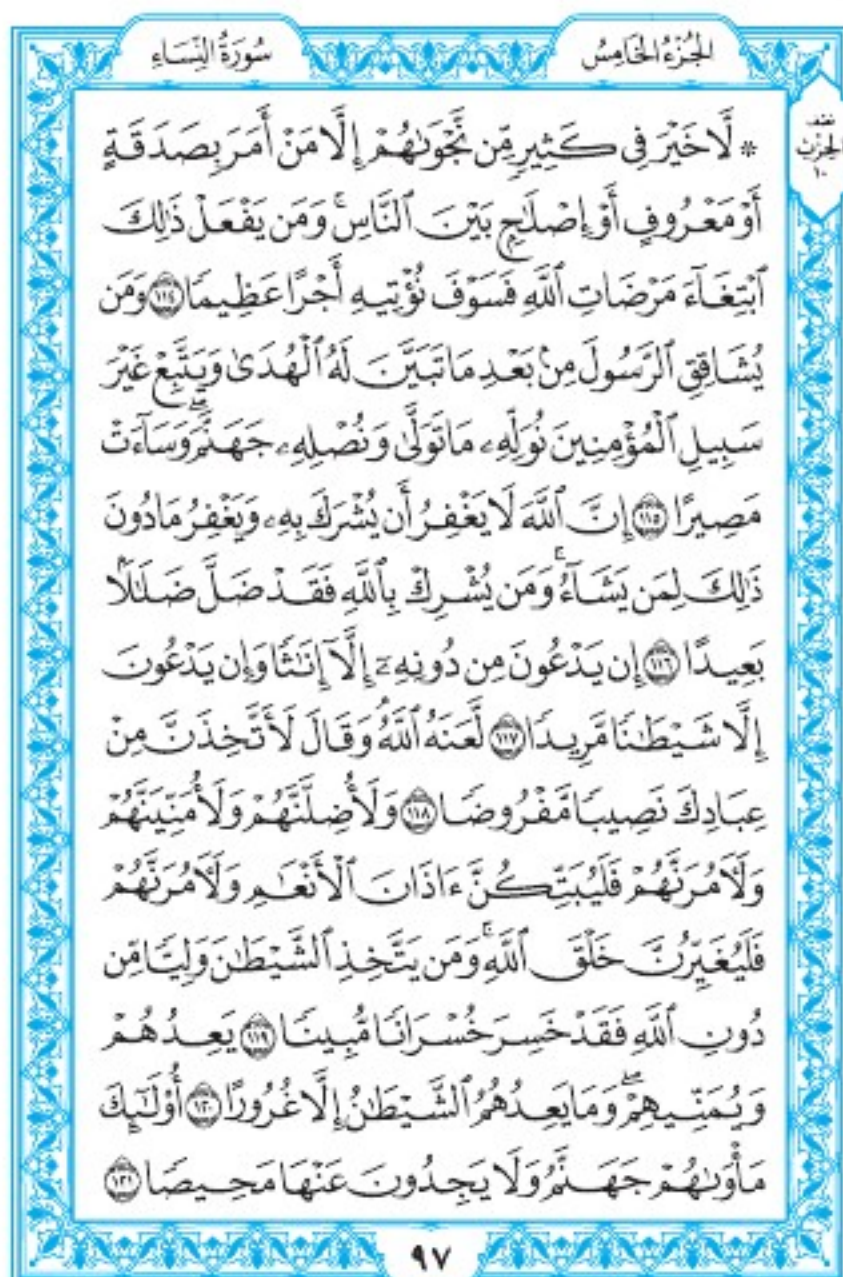 الجُزْءُ الخَامِسُ
سُورَةُ النِّسَاءِ
نصف
الحِزْب
١٠
* لَّا خَيْرَ فِى كَثِيرٍ مِّن نَّجْوَىٰهُمْ إِلَّا مَنْ أَمَرَ بِصَدَقَةٍ
أَوْ مَعْرُوفٍ أَوْ إِصْلَٰحٍۭ بَيْنَ ٱلنَّاسِۚ وَمَن يَفْعَلْ ذَٰلِكَ
ٱبْتِغَآءَ مَرْضَاتِ ٱللَّهِ فَسَوْفَ نُؤْتِيهِ أَجْرًا عَظِيمًا ١١٤ وَمَن
يُشَاقِقِ ٱلرَّسُولَ مِنۢ بَعْدِ مَا تَبَيَّنَ لَهُ ٱلْهُدَىٰ وَيَتَّبِعْ غَيْرَ
سَبِيلِ ٱلْمُؤْمِنِينَ نُوَلِّهِۦ مَا تَوَلَّىٰ وَنُصْلِهِۦ جَهَنَّمَۖ وَسَآءَتْ
مَصِيرًا ١١٥ إِنَّ ٱللَّهَ لَا يَغْفِرُ أَن يُشْرَكَ بِهِۦ وَيَغْفِرُ مَا دُونَ
ذَٰلِكَ لِمَن يَشَآءُۚ وَمَن يُشْرِكْ بِٱللَّهِ فَقَدْ ضَلَّ ضَلَٰلًۢا
بَعِيدًا ١١٦ إِن يَدْعُونَ مِن دُونِهِۦٓ إِلَّآ إِنَٰثًا وَإِن يَدْعُونَ
إِلَّا شَيْطَٰنًا مَّرِيدًا ١١٧ لَّعَنَهُ ٱللَّهُۘ وَقَالَ لَأَتَّخِذَنَّ مِنْ
عِبَادِكَ نَصِيبًا مَّفْرُوضًا ١١٨ وَلَأُضِلَّنَّهُمْ وَلَأُمَنِّيَنَّهُمْ
وَلَءَامُرَنَّهُمْ فَلَيُبَتِّكُنَّ ءَاذَانَ ٱلْأَنْعَٰمِ وَلَءَامُرَنَّهُمْ
فَلَيُغَيِّرُنَّ خَلْقَ ٱللَّهِۚ وَمَن يَتَّخِذِ ٱلشَّيْطَٰنَ وَلِيًّا مِّن
دُونِ ٱللَّهِ فَقَدْ خَسِرَ خُسْرَانًا مُّبِينًا ١١٩ يَعِدُهُمْ
وَيُمَنِّيهِمْۖ وَمَا يَعِدُهُمُ ٱلشَّيْطَٰنُ إِلَّا غُرُورًا ١٢٠ أُو۟لَٰٓئِكَ
مَأْوَىٰهُمْ جَهَنَّمُ وَلَا يَجِدُونَ عَنْهَا مَحِيصًا ١٢١
٩٧